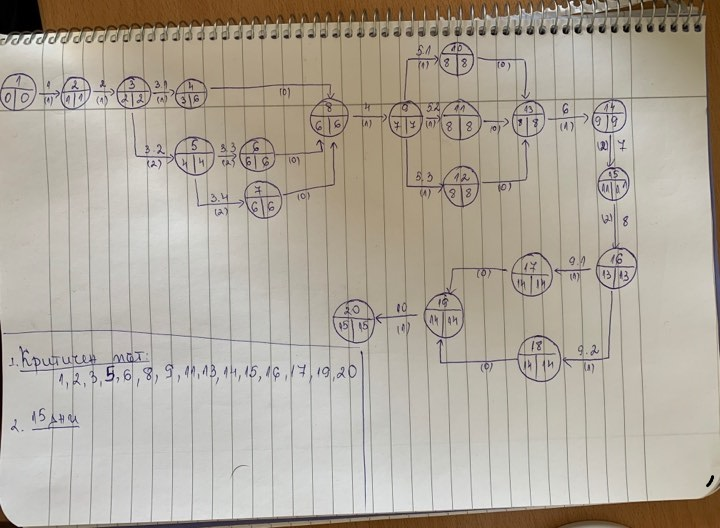 1
0 0
1
(1)
2
1 1
2
(1)
3
2 2
3.1
(1)
4
3 6
(0)
3.2
(2)
5
4 4
3.3
(2)
6
6 6
(0)
3.4
(2)
7
6 6
(0)
8
6 6
4
(1)
9
7 7
5.1
(1)
10
8 8
(0)
5.2
(1)
11
8 8
(0)
5.3
(1)
12
8 8
(0)
13
8 8
6
(1)
14
9 9
(2) 7
15
11 11
(2) 8
16
13 13
9.1
(1)
17
14 14
(0)
9.2
(1)
18
14 14
(0)
19
14 14
10
(1)
20
15 15
1. Критичен път:
1, 2, 3, 5, 6, 8, 9, 11, 13, 14, 15, 16, 17, 19, 20
2. 15 дни